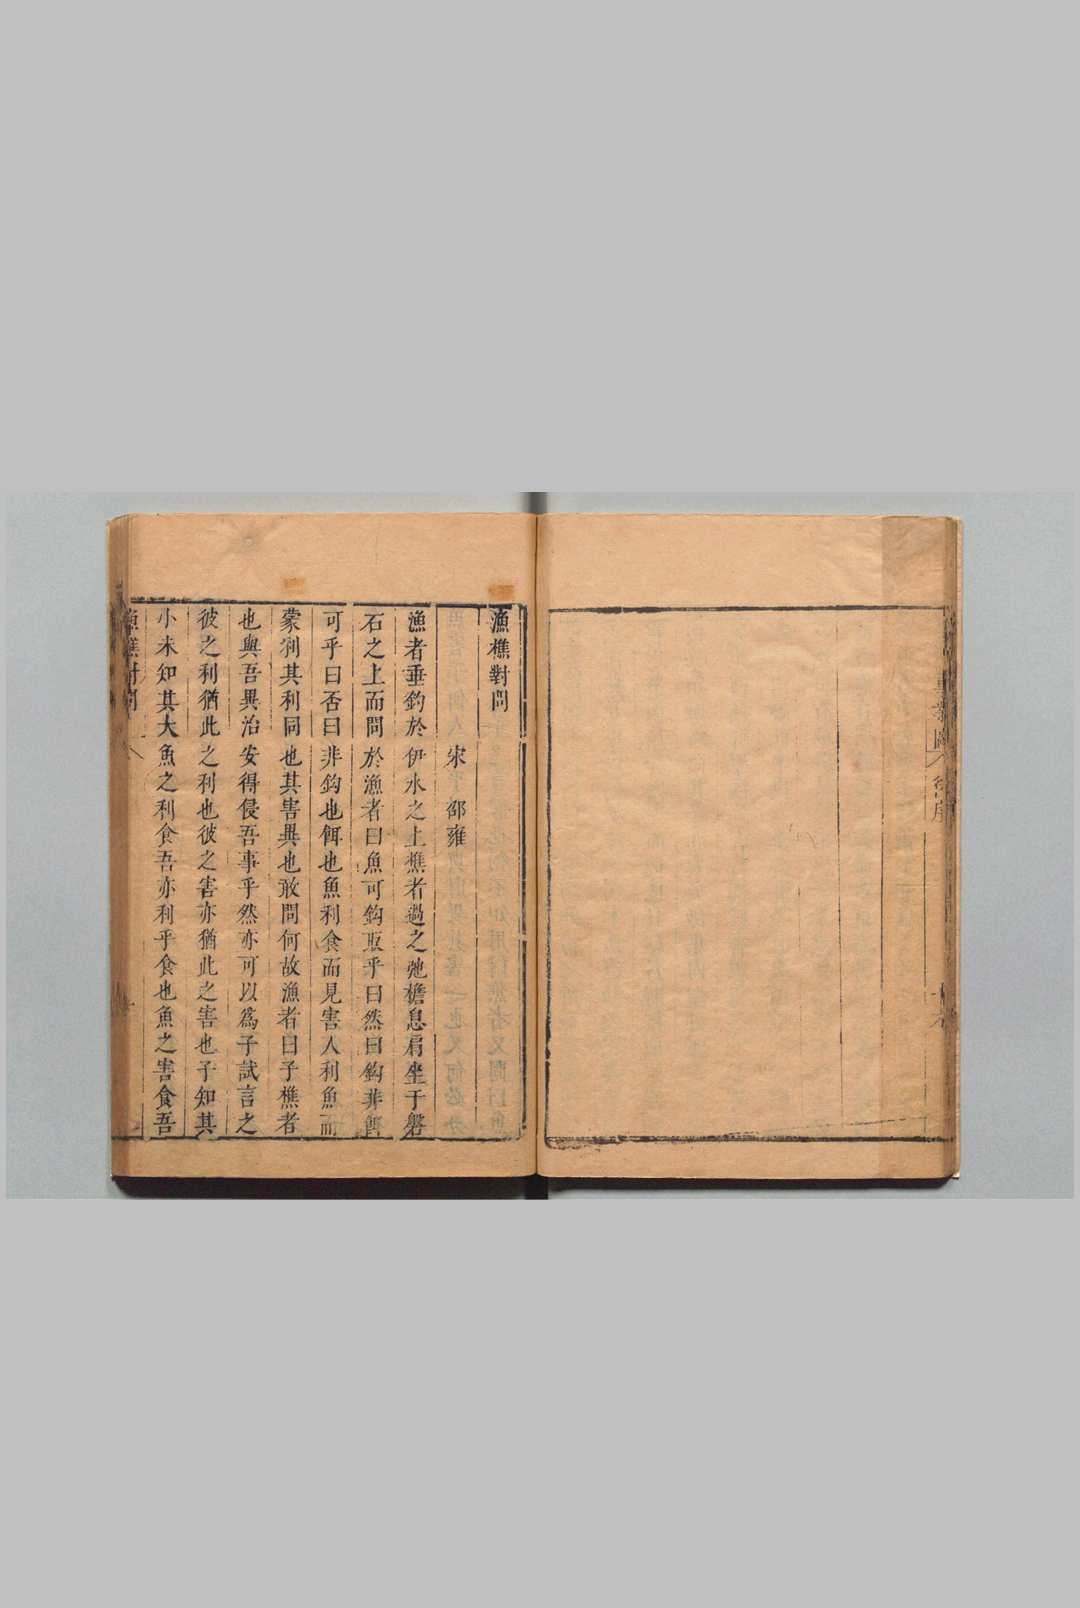 漁樵對問
宋 邵雍
漁者垂鈎於伊水之上樵者過之弛檐息肩坐于磐
石之上而問於漁者曰魚可鈎取乎曰然曰鈎非餌
可乎曰否曰非鈎也餌也魚利食而見害人利魚而
蒙利其利同也其害異也敢問何故漁者曰子樵者
也與吾異治安得侵吾事乎然亦可以爲子試言之
彼之利猶此之利也彼之害亦猶此之害也子知其
小未知其大魚之利食吾亦利乎食也魚之害食吾
漁樵對問